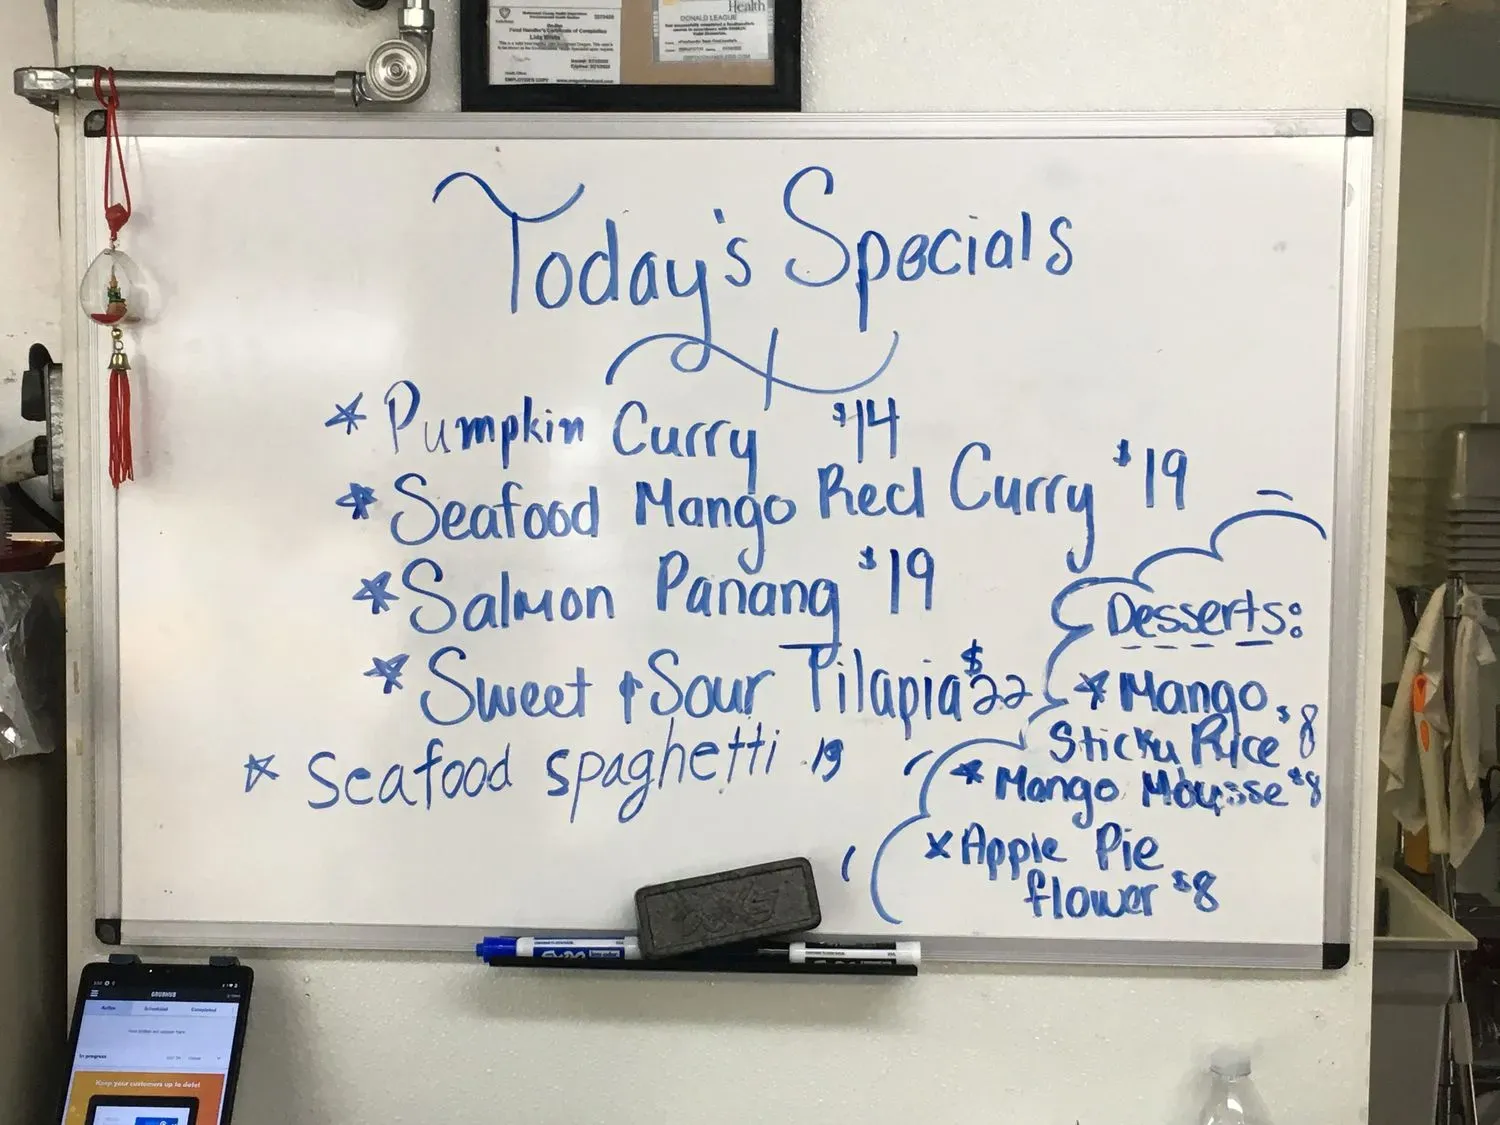 Health
DONALD LEAGUE
Food Handler's Certificate of Completion
EMPLOYER'S COPY
Today's Specials
* Pumpkin Curry $14
* Seafood Mango Red Curry $19
* Salmon Panang $19
* Sweet & Sour Tilapia $22
* Seafood spaghetti 19
Desserts:
* Mango
Sticky Rice $8
* Mango Mousse $8
x Apple Pie
flower $8
EXPO
EXPO
GRUBHUB
Active Scheduled Completed
In progress
Keep your customers up to date!